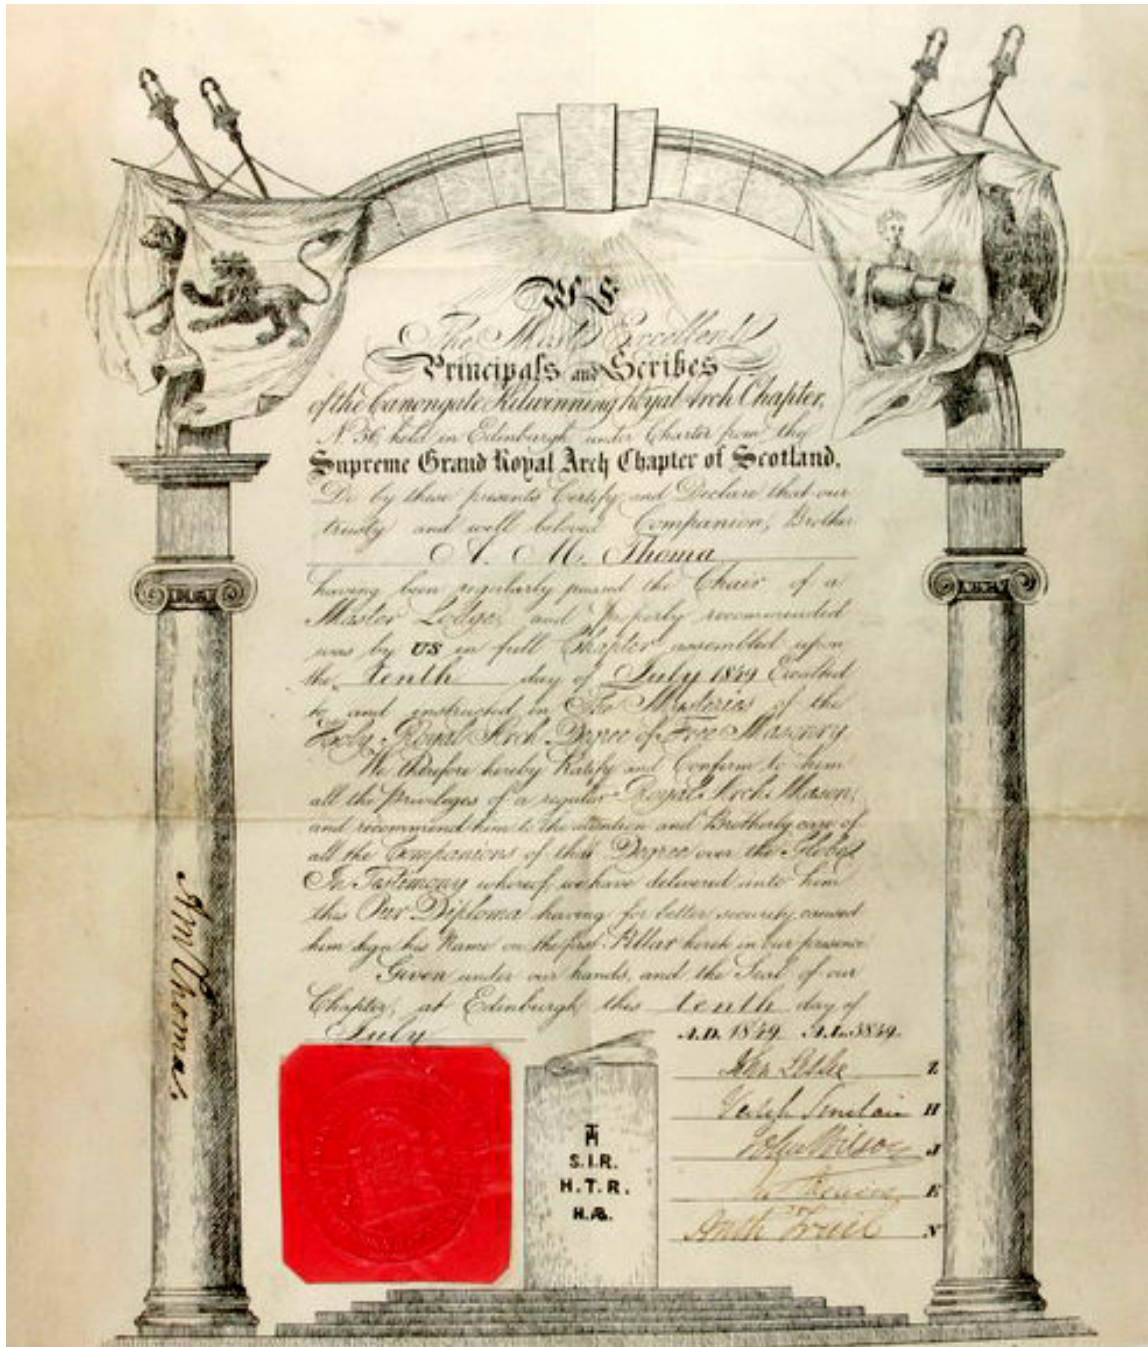 WE
The Most Excellent
Principals and Scribes
of the Canongate Kilwinning Royal Arch Chapter,
No. 56, held in Edinburgh under Charter from the
Supreme Grand Royal Arch Chapter of Scotland.
Do by these presents Certify and Declare that our
trusty and well beloved Companion, Brother
A. M. Thoma
having been regularly passed the Chair of a
Master Lodge, and Properly recommended
was by US in full Chapter assembled upon
the tenth day of July 1849 Exalted
to and instructed in The Mysteries of the
Holy Royal Arch Degree of Free Masonry
We therefore hereby Ratify and Confirm to him
all the Privileges of a regular Royal Arch Mason,
and recommend him to the attention and Brotherly care of
all the Companions of this Degree over the Globe
In Testimony whereof we have delivered unto him
this Our Diploma having for better security caused
him sign his Name on the first Pillar herein in our presence
Given under our hands, and the Seal of our
Chapter, at Edinburgh this tenth day of
July A.D. 1849. A.L. 5849.
John Leslie Z
Sinclair H
John Wilson J
E
Anth Truel N
TH
S.I.R.
H.T.R.
H.Æ.
A M Thomas.